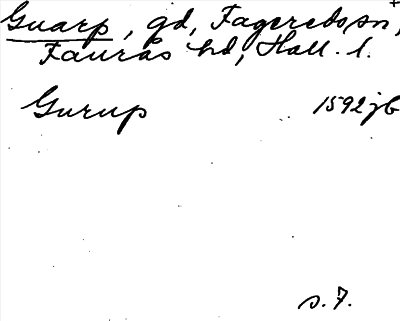 Guarp, gd, Fagereds sn,
Faurås hd, Hall. l.
Gurup 1592 jb
s. 7.